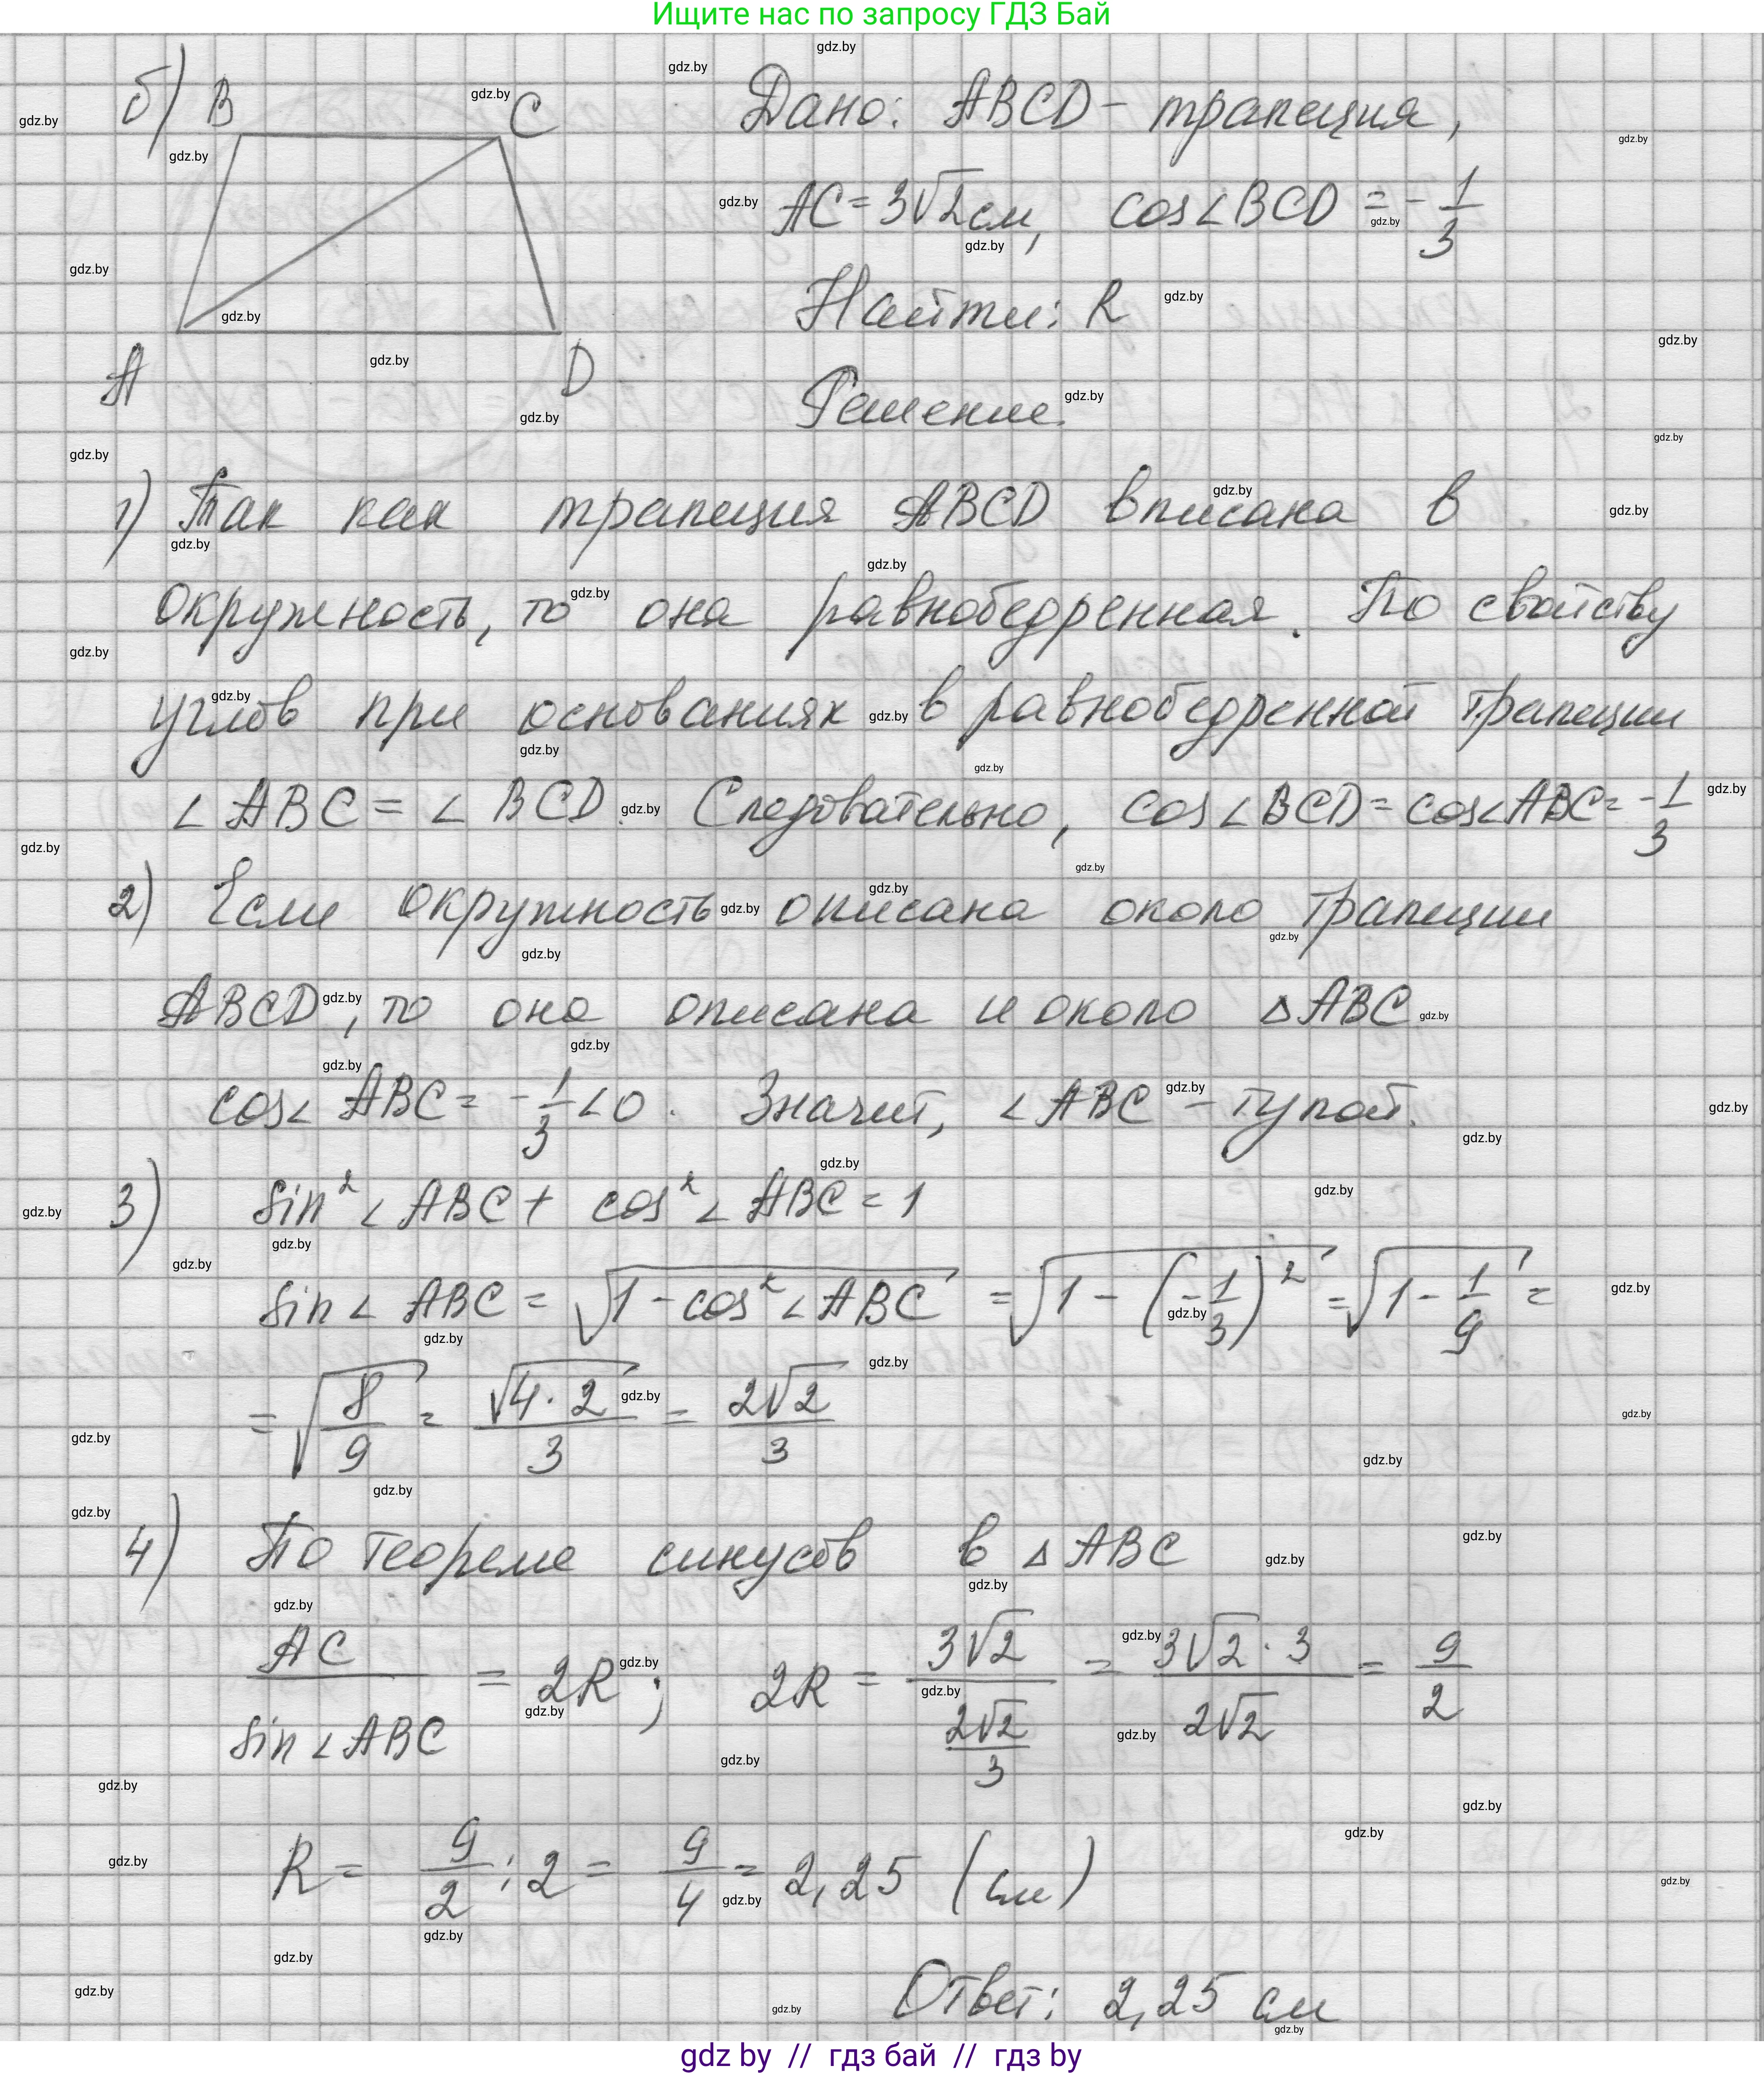 Ищите нас по запросу ГДЗ Бай
б) B C A D
Дано: ABCD - трапеция,
AC = 3√2 см, cos∠BCD = -1/3
Найти: R
Решение.
1) Так как трапеция ABCD вписана в
окружность, то она равнобедренная. По свойству
углов при основаниях в равнобедренной трапеции
∠ABC = ∠BCD. Следовательно, cos∠BCD = cos∠ABC = -1/3
2) Если окружность описана около трапеции
ABCD, то она описана и около △ABC
cos∠ABC = -1/3 < 0. Значит, ∠ABC - тупой.
3) sin²∠ABC + cos²∠ABC = 1
sin∠ABC = √(1 - cos²∠ABC) = √(1 - (-1/3)²) = √(1 - 1/9) =
= √(8/9) = √(4·2)/3 = 2√2/3
4) По теореме синусов в △ABC
AC/sin∠ABC = 2R; 2R = 3√2/(2√2/3) = 3√2·3/2√2 = 9/2
R = 9/2 : 2 = 9/4 = 2,25 (см)
Ответ: 2,25 см
gdz by // гдз бай // гдз by